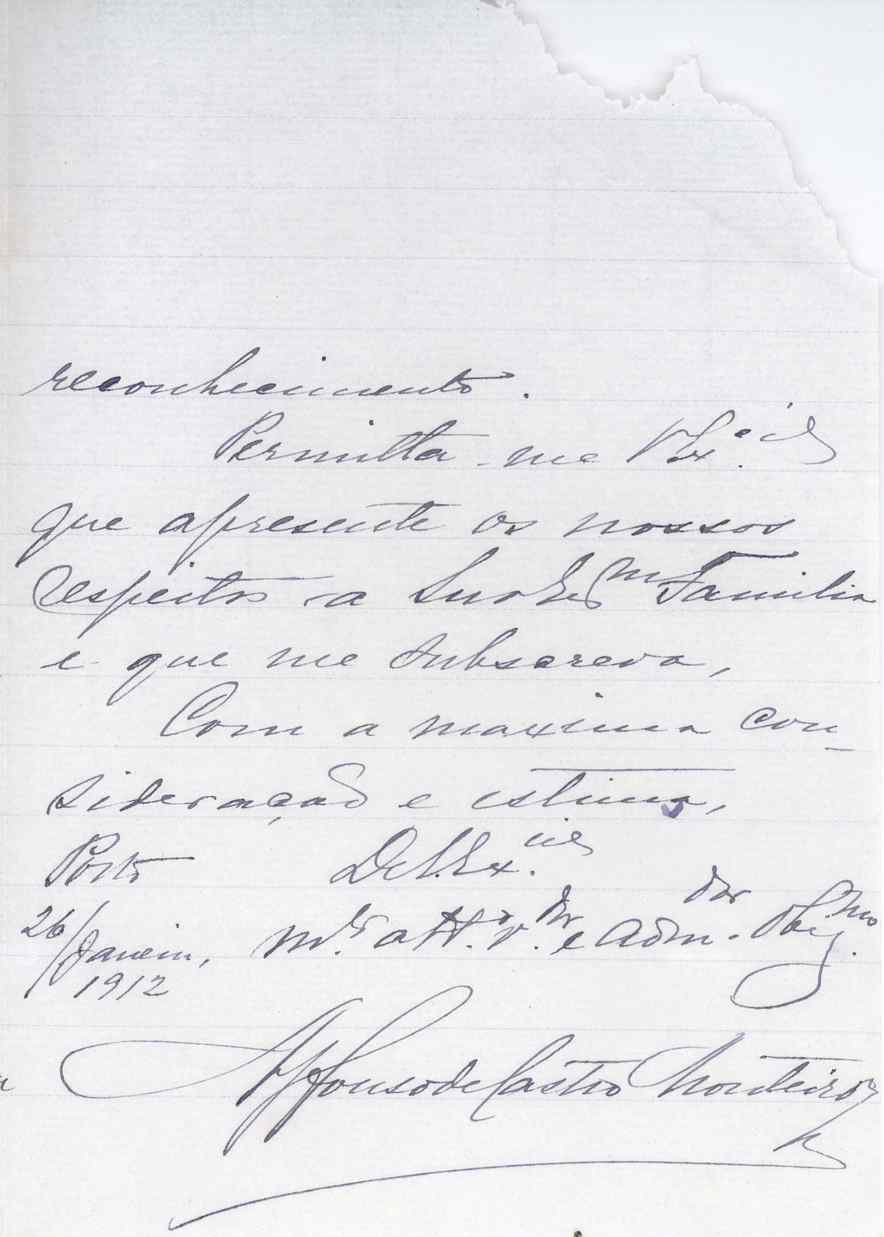 reconhecimento.
Permitta-me V. Ex.cia
que apresente os nossos
respeitos a Sua Ex.ma Familia
e que me subscreva,
Com a maxima con-
sideração e estima,
Porto De V. Ex.cia
26/Janeiro, m.to att.o v.dor e adm.dor Obrig.mo
1912
Affonso de Castro Monteiro